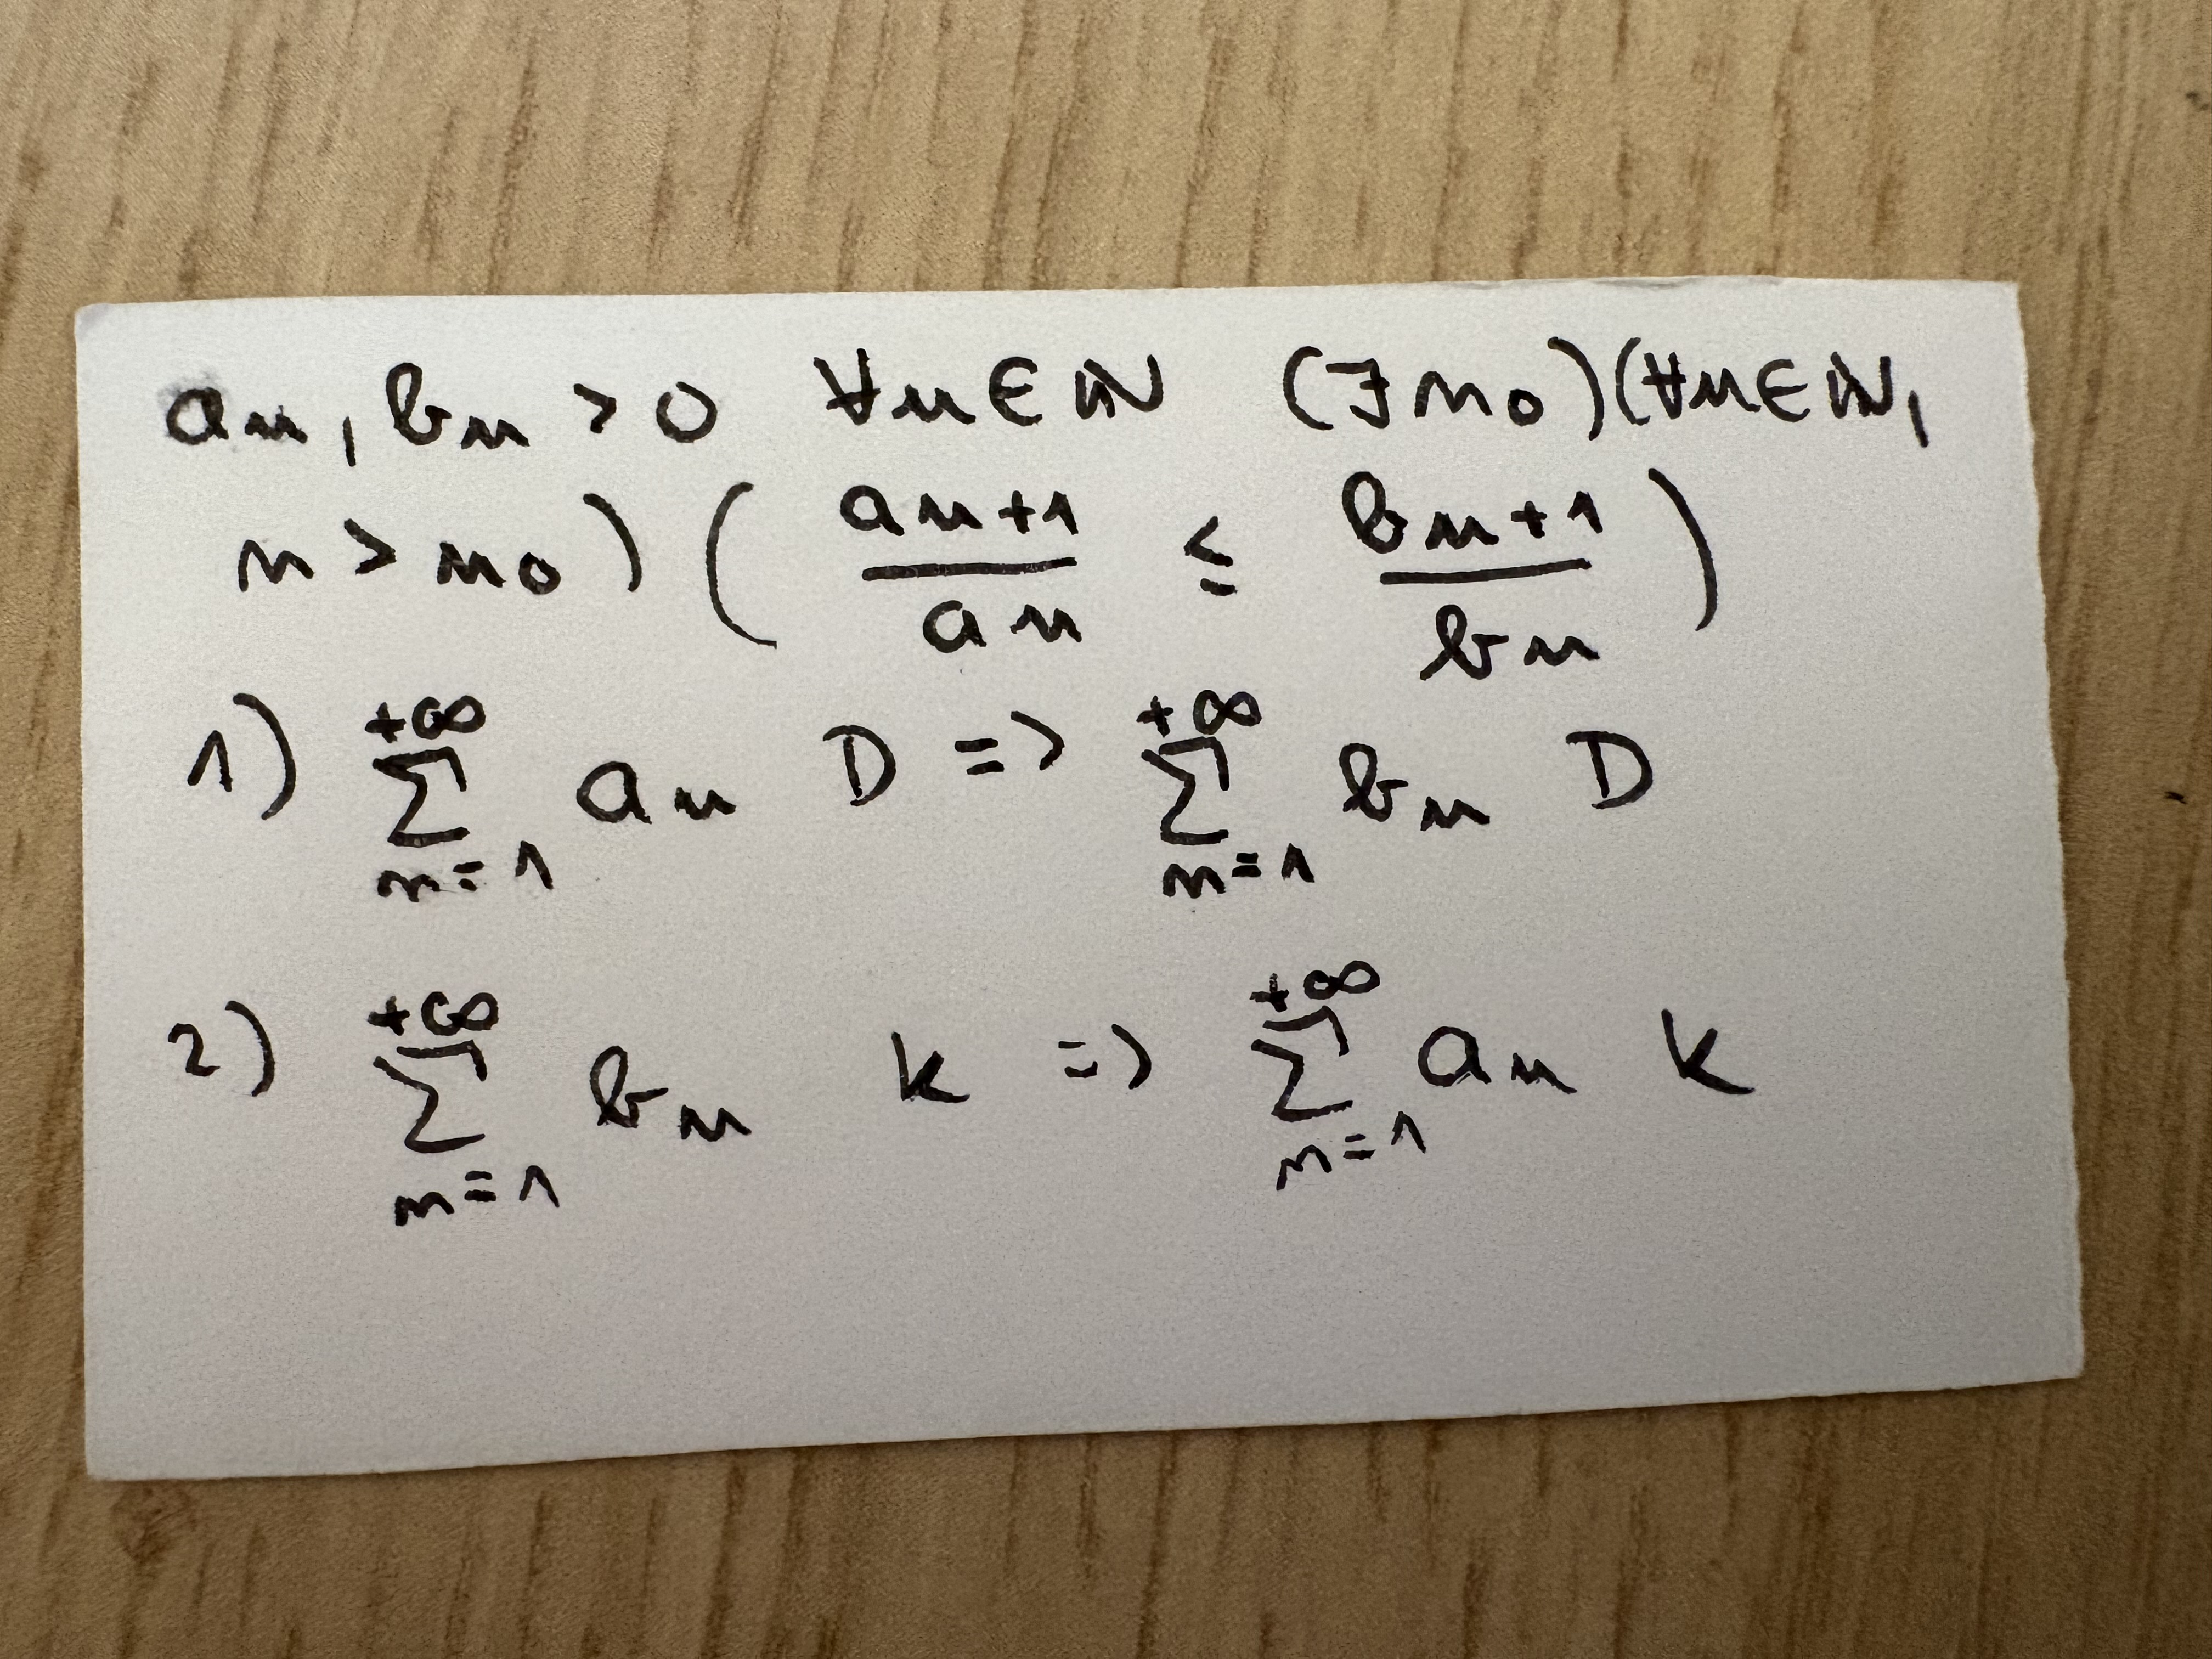 aₙ, bₙ > 0 ∀n∈ℕ (∃n₀)(∀n∈ℕ,
n > n₀) ( aₙ₊₁/aₙ ≤ bₙ₊₁/bₙ )
1) ∑_{n=1}^{+∞} aₙ D => ∑_{n=1}^{+∞} bₙ D
2) ∑_{n=1}^{+∞} bₙ k => ∑_{n=1}^{+∞} aₙ k